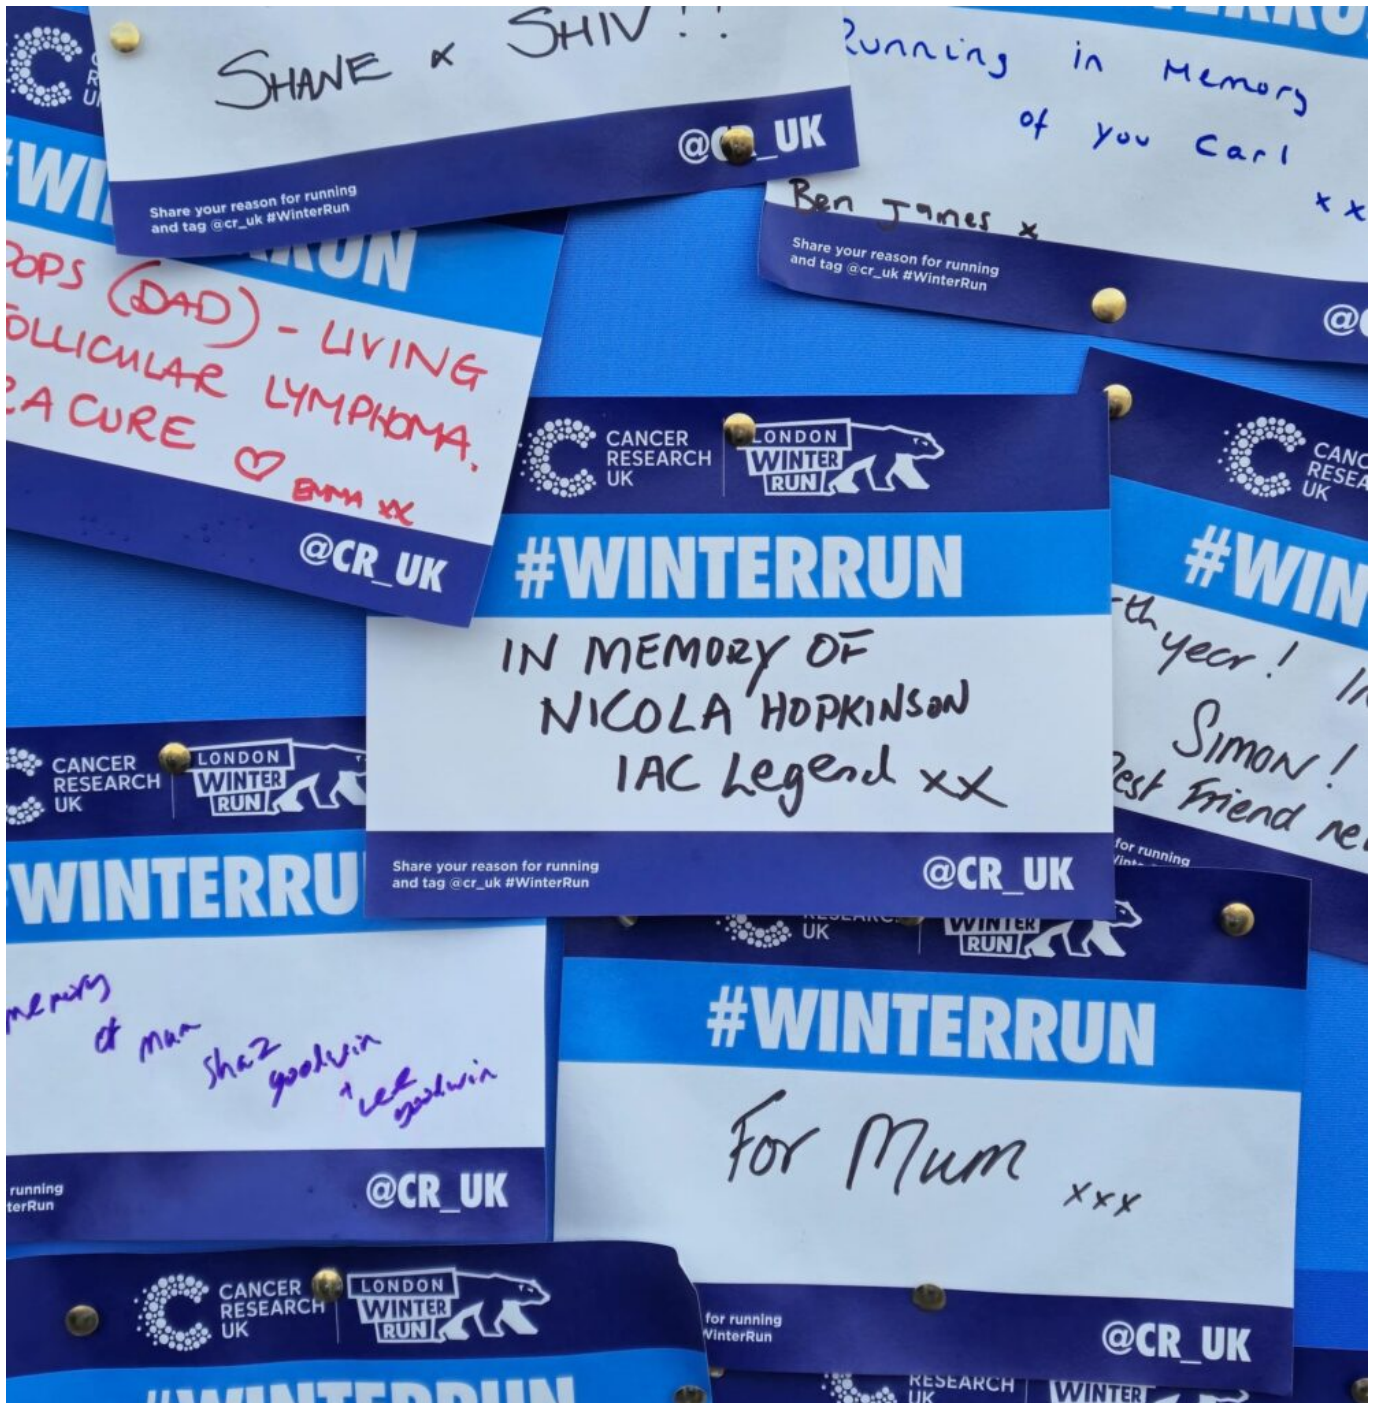 SHANE & SHIV!!
@CR_UK
Share your reason for running
and tag @cr_uk #WinterRun
WINTERRU
Running in Memory
of you Carl
x x
Ben James x
Share your reason for running
and tag @cr_uk #WinterRun
@
#WI
RUN
POPS (DAD) - LIVING
FOLLICULAR LYMPHOMA.
A CURE ♡
EMMA xx
@CR_UK
CANCER
RESEARCH
UK
LONDON
WINTER
RUN
#WINTERRUN
IN MEMORY OF
NICOLA HOPKINSON
IAC Legend xx
Share your reason for running
and tag @cr_uk #WinterRun
@CR_UK
CANC
RESEA
UK
#WIN
th year! I
SIMON!
Best Friend
for running
CANCER
RESEARCH
UK
LONDON
WINTER
RUN
#WINTERRU
memory
of mum
shaz
goodwin
+ Lee
goodwin
running
terRun
@CR_UK
RESEARCH
UK
WINTER
RUN
#WINTERRUN
For Mum xxx
for running
WinterRun
@CR_UK
CANCER
RESEARCH
UK
LONDON
WINTER
RUN
#WINTERRUN
RESEARCH
UK
WINTER